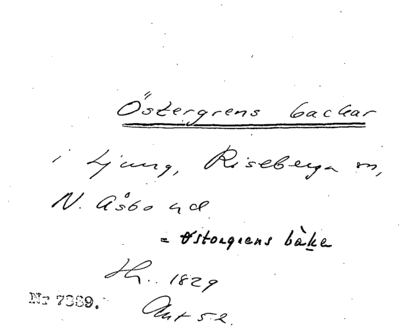 Östergrens backar
i Ljung, Riseberga sn,
N. Åsbo hd
= östorgrens bàke
1829
Nr 7369.